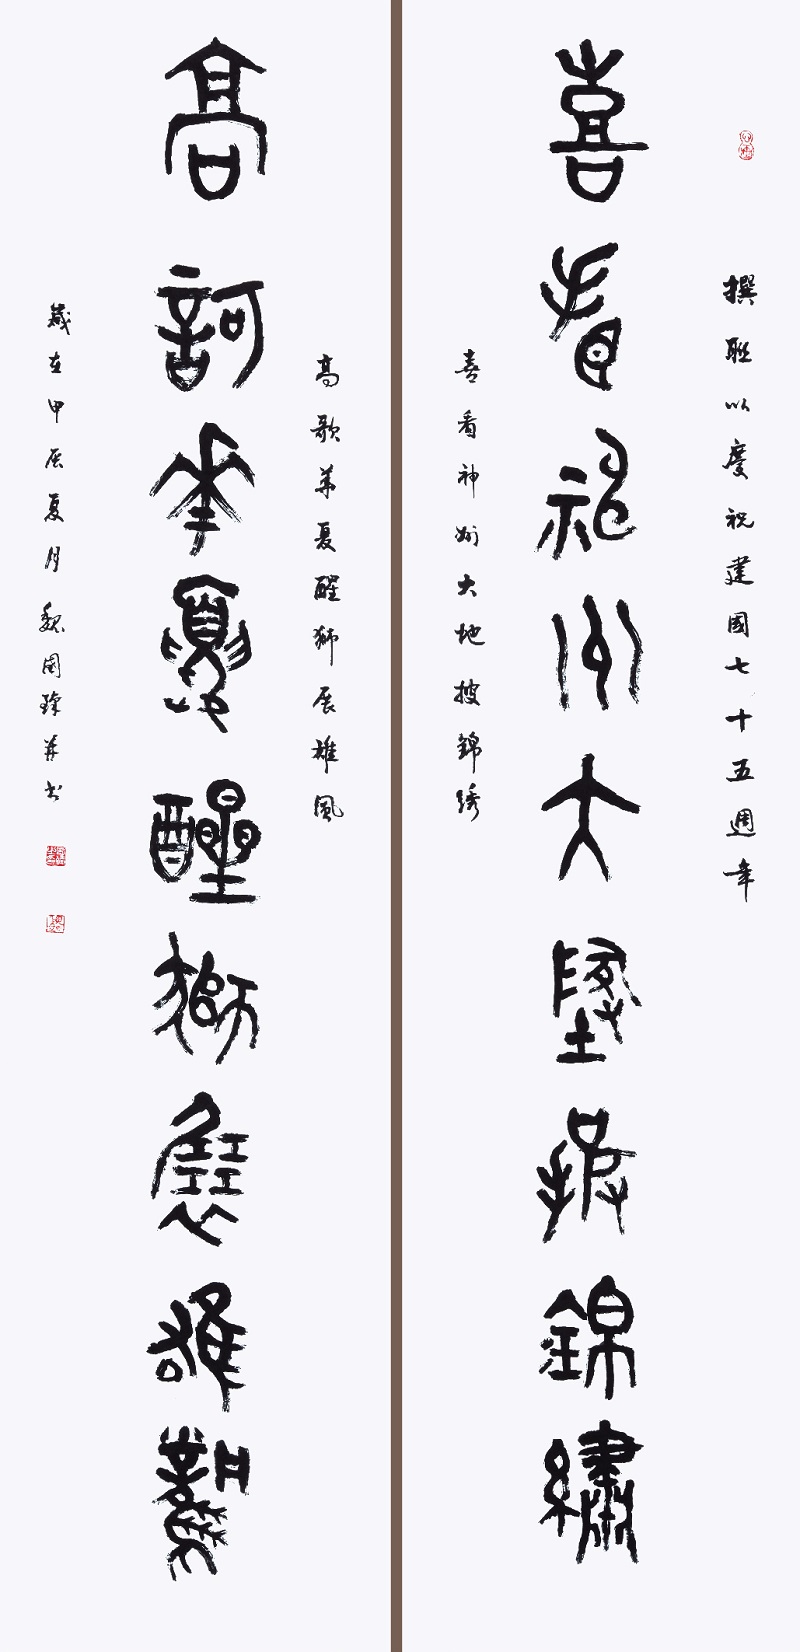 撰聯以慶祝建國七十五週年
喜看神州大地披錦繡
喜看神州大地披錦綉
高歌華夏醒獅展雄風
高歌華夏醒獅展雄風
歲在甲辰夏月魏國 并书